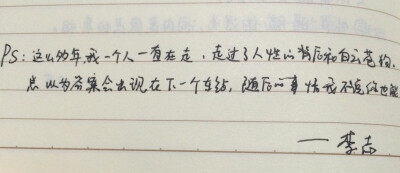 PS:这么多年我一个人一直在走,走过了人性的背后和白云苍狗,
总以为答案会出现在下一个车站,随后的事情我不说你也能
——李志